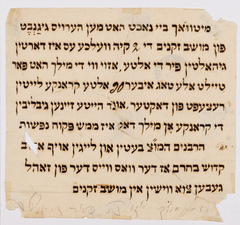 מיטוואך ביי נאכט האט מען הערויס גיגנבֿט
פון מושב זקנים די 2 קיה וועלכע עס איז דארטין
גיהאלטין פיר די אלטע, אזוי ווי די מילך האט פאר
טיילט אלע טאג איבער 90 אלטע קראנקע לייטין
רעצעפט פון דאקטער, אונז הייטע זיינען געבליבין
די קראנקע אן מילך דאס איז ממש פקוח נפשות
הרבנים המו"צ בעטין און לייגין אויף
קדוש בחרם אז דער וואס ווייס דער פון זאהל
געבען צוא ווישין אין מושב זקנים